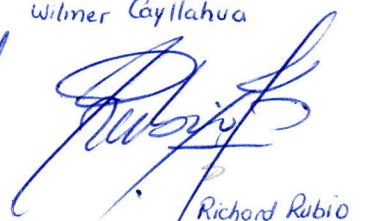 Wilmer Cayllahua
Rubio
Richard Rubio